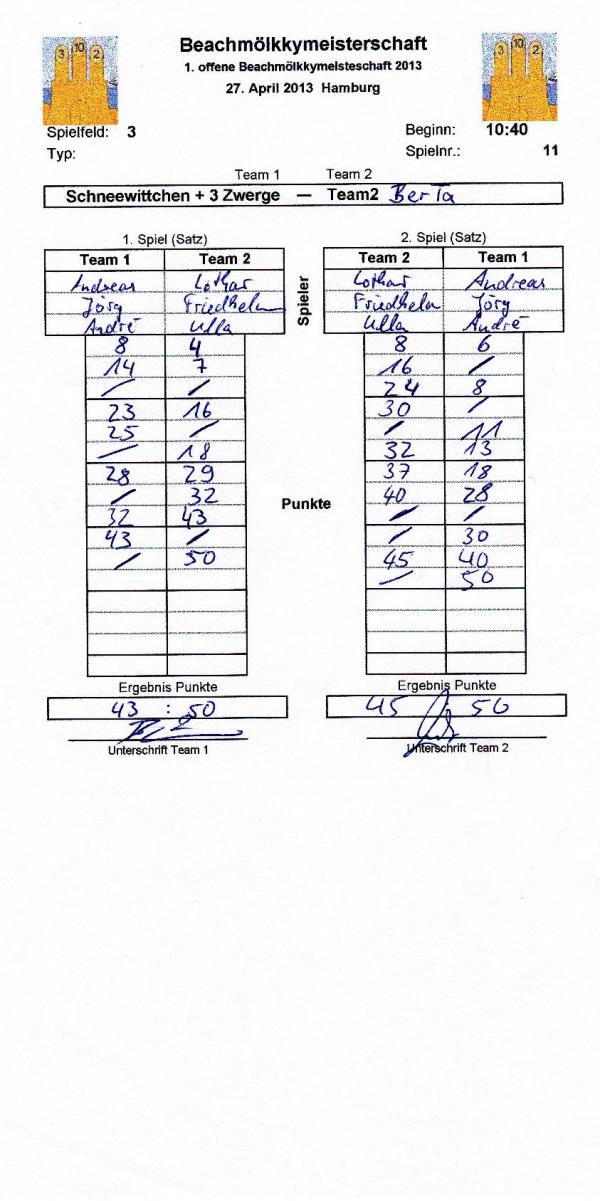 3 10 2
Beachmölkkymeisterschaft
3 10 2
1. offene Beachmölkkymeisteschaft 2013
27. April 2013 Hamburg
Spielfeld: 3 Beginn: 10:40
Typ: Spielnr.: 11
Team 1 Team 2
Schneewittchen + 3 Zwerge — Team2 BerTa
1. Spiel (Satz) 2. Spiel (Satz)
Team 1 Team 2 Team 2 Team 1
Andreas Lothar Spieler Lothar Andreas
Jörg Friedhelm Friedhelm Jörg
André Ulla Ulla André
8 4 8 6
14 7 16 /
/ / 24 8
23 16 30 /
25 / / 11
/ 18 32 13
28 29 37 18
/ 32 Punkte 40 28
32 43 / /
43 / / 30
/ 50 45 40
/ 50
Ergebnis Punkte Ergebnis Punkte
43 : 50 45 : 50
Unterschrift Team 1 Unterschrift Team 2